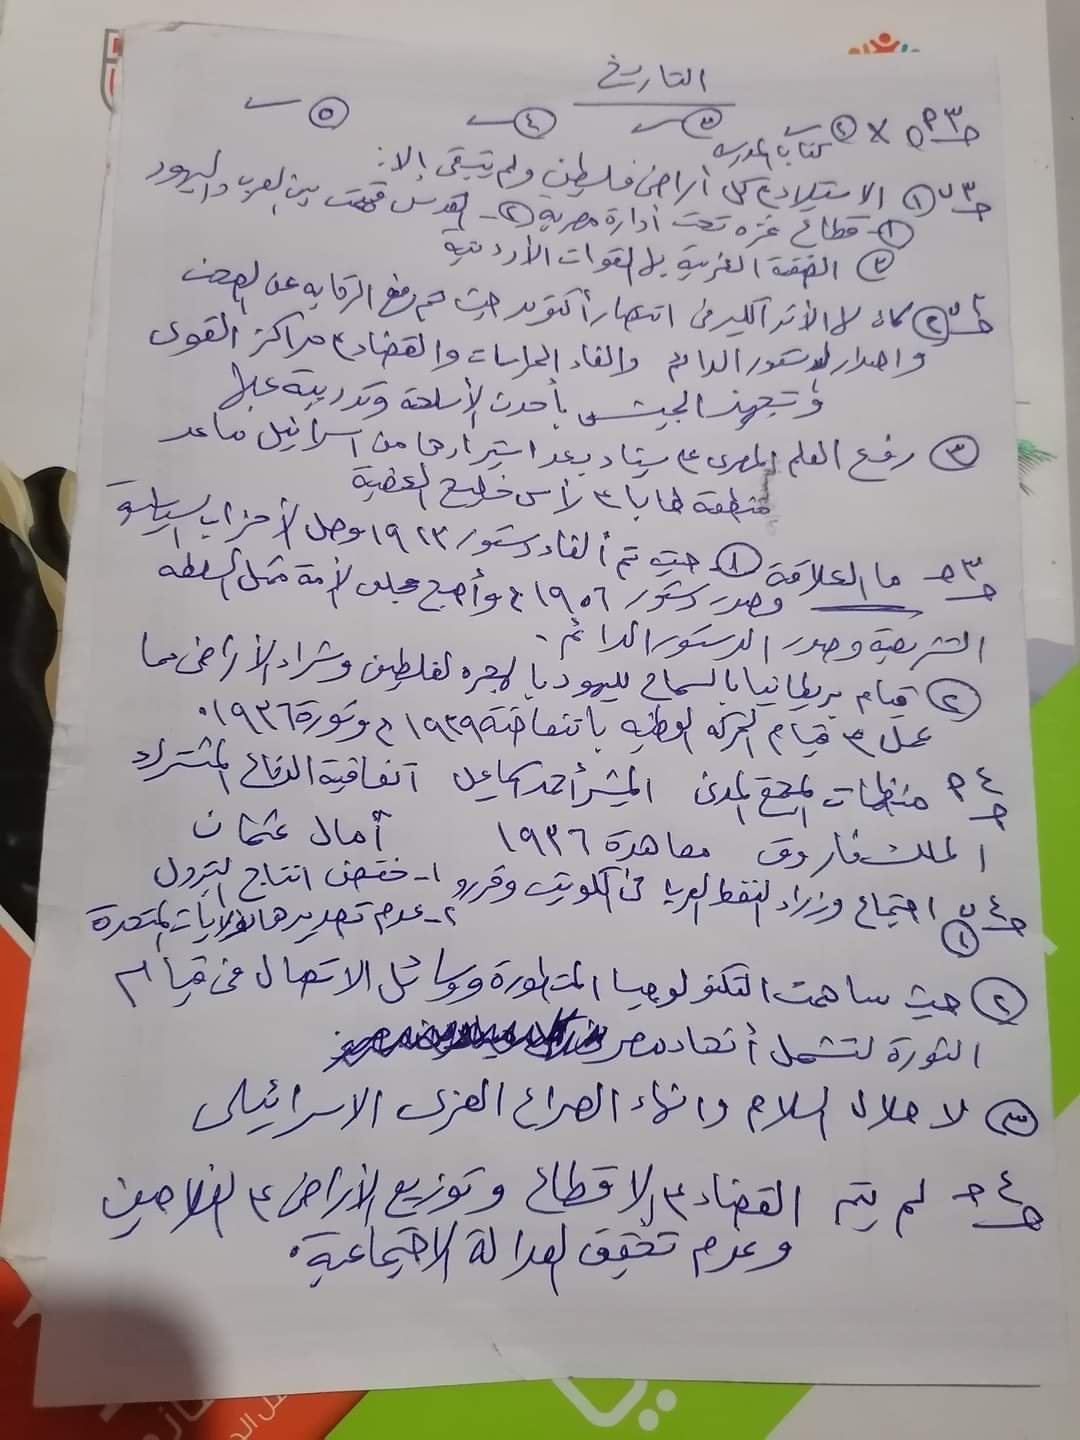 التاريخ
جـ٣ م ① × ② كتاب المدرسه ③ ـ ④ ـ ⑤ ـ
جـ٣ ب ① الاستيلاء على أراضى فلسطين ولم يتبقى إلا:
①- قطاع غزه تحت أدارة مصرية ②- القدس قسمت بين العرب واليهود
③ الضفة الغربية بالقوات الأردنية
② كان لها الأثر الكبير فى انتصار أكتوبر حيث تم رفع الرقابه عن الصحف
واصدار الدستور الدائم والغاء الحراسات والقضاء ع مراكز القوى
وتجهيز الجيش بأحدث الأسلحة وتدريبة عليها
③ رفع العلم المصرى ع سيناء بعد استردادها من اسرائيل ماعد
منطقة طابا ع رأس خليج العقبة
جـ٣ جـ ما العلاقة ①- حيث تم ألغاء دستور ١٩٢٣ وحل الأحزاب السياسية
وصدر دستور ١٩٥٦ م وأصبح مجلس الأمة تمثل السلطه
التشريعية وصدر الدستور الدائم.
② قيام بريطانيا بالسماح لليهود بالهجره لفلسطين وشراء الأراضى مما
عمل ع قيام الحركه الوطنيه بانتفاضة ١٩٢٩ م وثورة ١٩٣٦.
جـ٤ م منظمات المجتمع المدنى المشير أحمد اسماعيل اتفاقية الدفاع المشترك
الملك فاروق معاهدة ١٩٣٦ أمال عثمان
جـ٤ ب ① اجتماع وزراء النفط العرب فى الكويت وقررو ١- خفض انتاج البترول
٢- عدم تصديرها للولايات المتحدة
② حيث ساهمت التكنولوجيا المتطورة ووسائل الاتصال فى قيام
الثورة لتشمل أنحاء مصر
③ لاحلال السلام وانهاء الصراع العربى الاسرائيلى
جـ٤ جـ لم يتم القضاء ع الاقطاع وتوزيع الأراضى ع الفلاحين
وعدم تحقيق العدالة الاجتماعية.